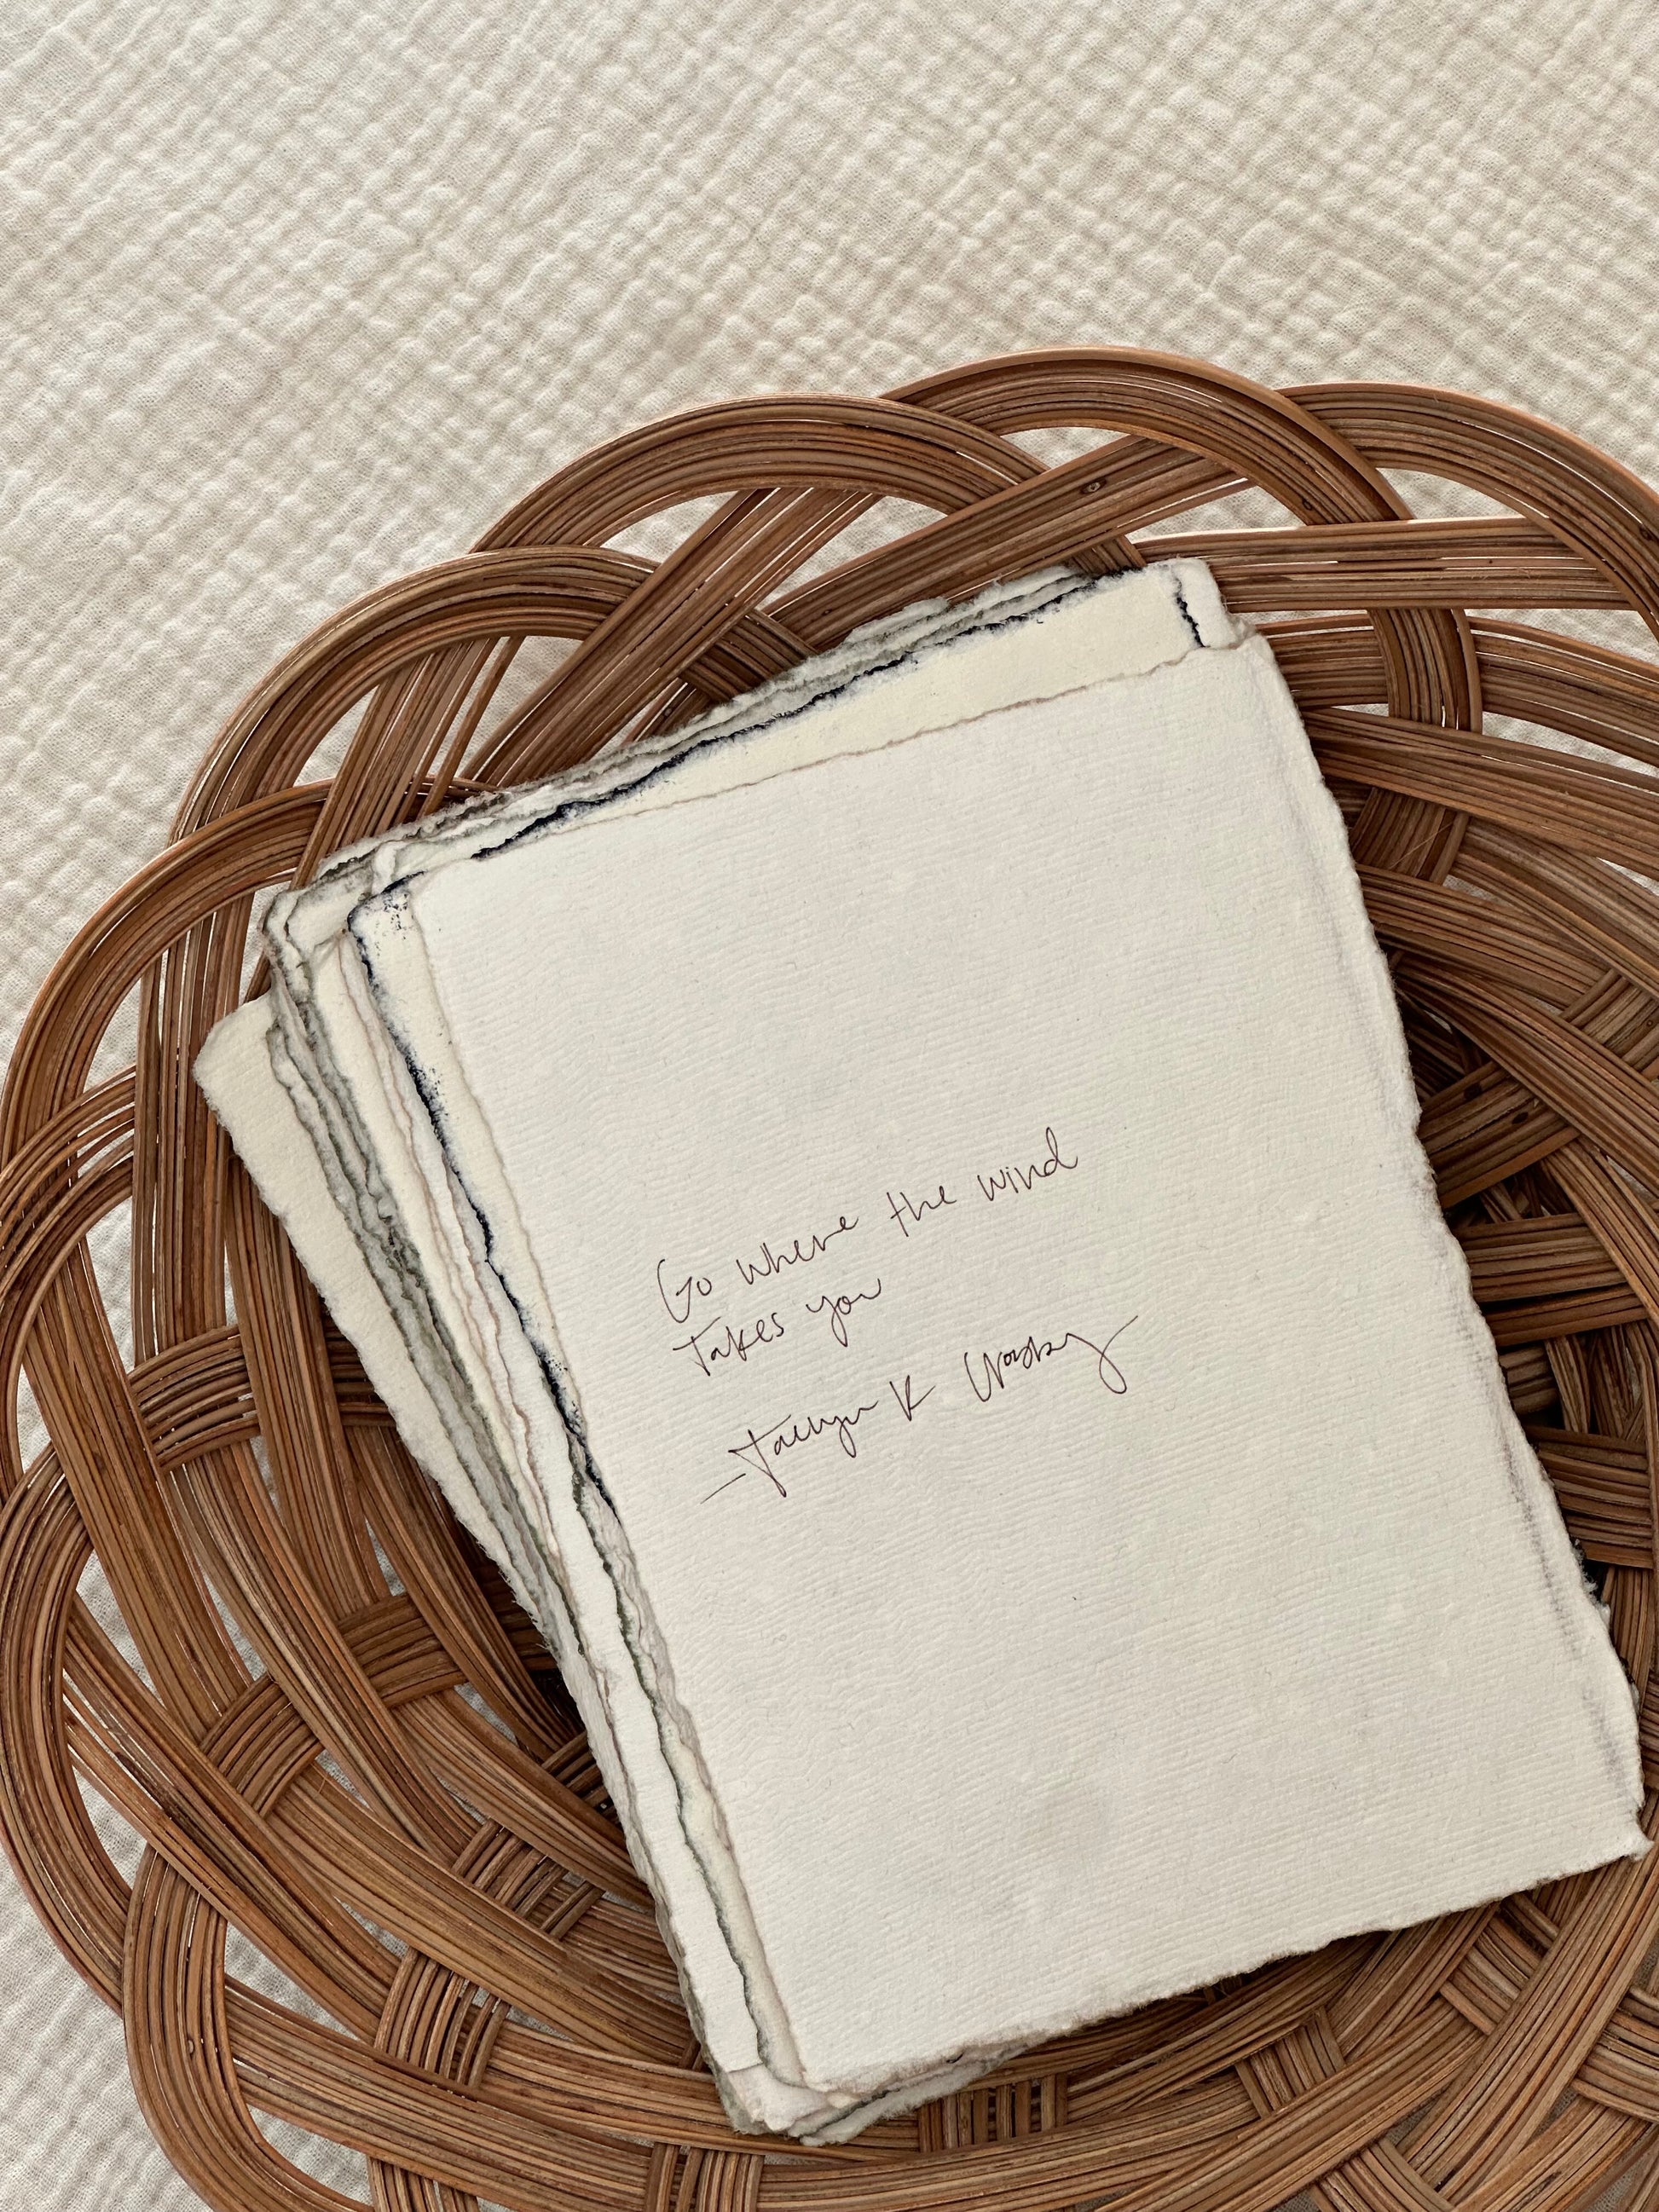 Go where the wind
takes you
—Taelyn K Crosby